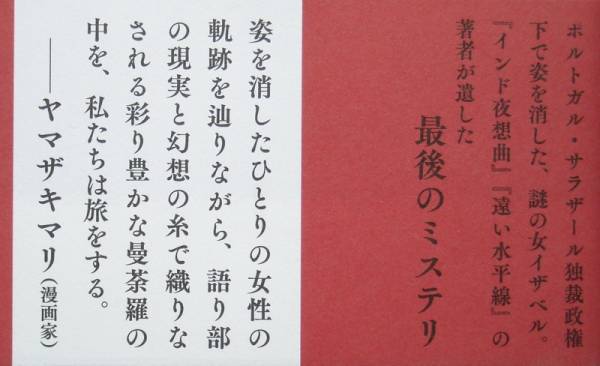 ポルトガル・サラザール独裁政権
下で姿を消した、謎の女イザベル。
『インド夜想曲』『遠い水平線』の
著者が遺した
最後のミステリ
姿を消したひとりの女性の
軌跡を辿りながら、語り部
の現実と幻想の糸で織りな
される彩り豊かな曼荼羅の
中を、私たちは旅をする。
――ヤマザキマリ(漫画家)